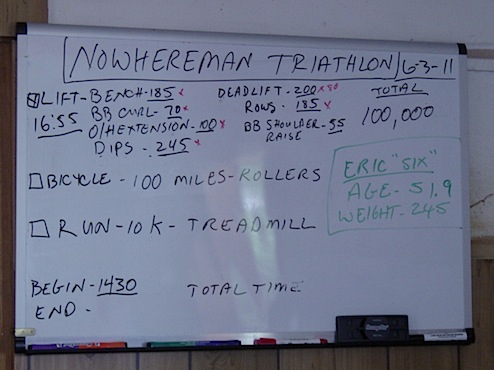 NOWHEREMAN TRIATHLON 6-3-11
LIFT-BENCH-185 x
16:55 BB CURL-70 x
O/H EXTENSION-100 x
DIPS-245 x
DEADLIFT-200 x
ROWS-185 x
BB SHOULDER-55
RAISE
TOTAL
100,000
BICYCLE-100 MILES-ROLLERS
RUN-10K-TREADMILL
ERIC "SIX"
AGE-51.9
WEIGHT-245
BEGIN-1430
END-
TOTAL TIME